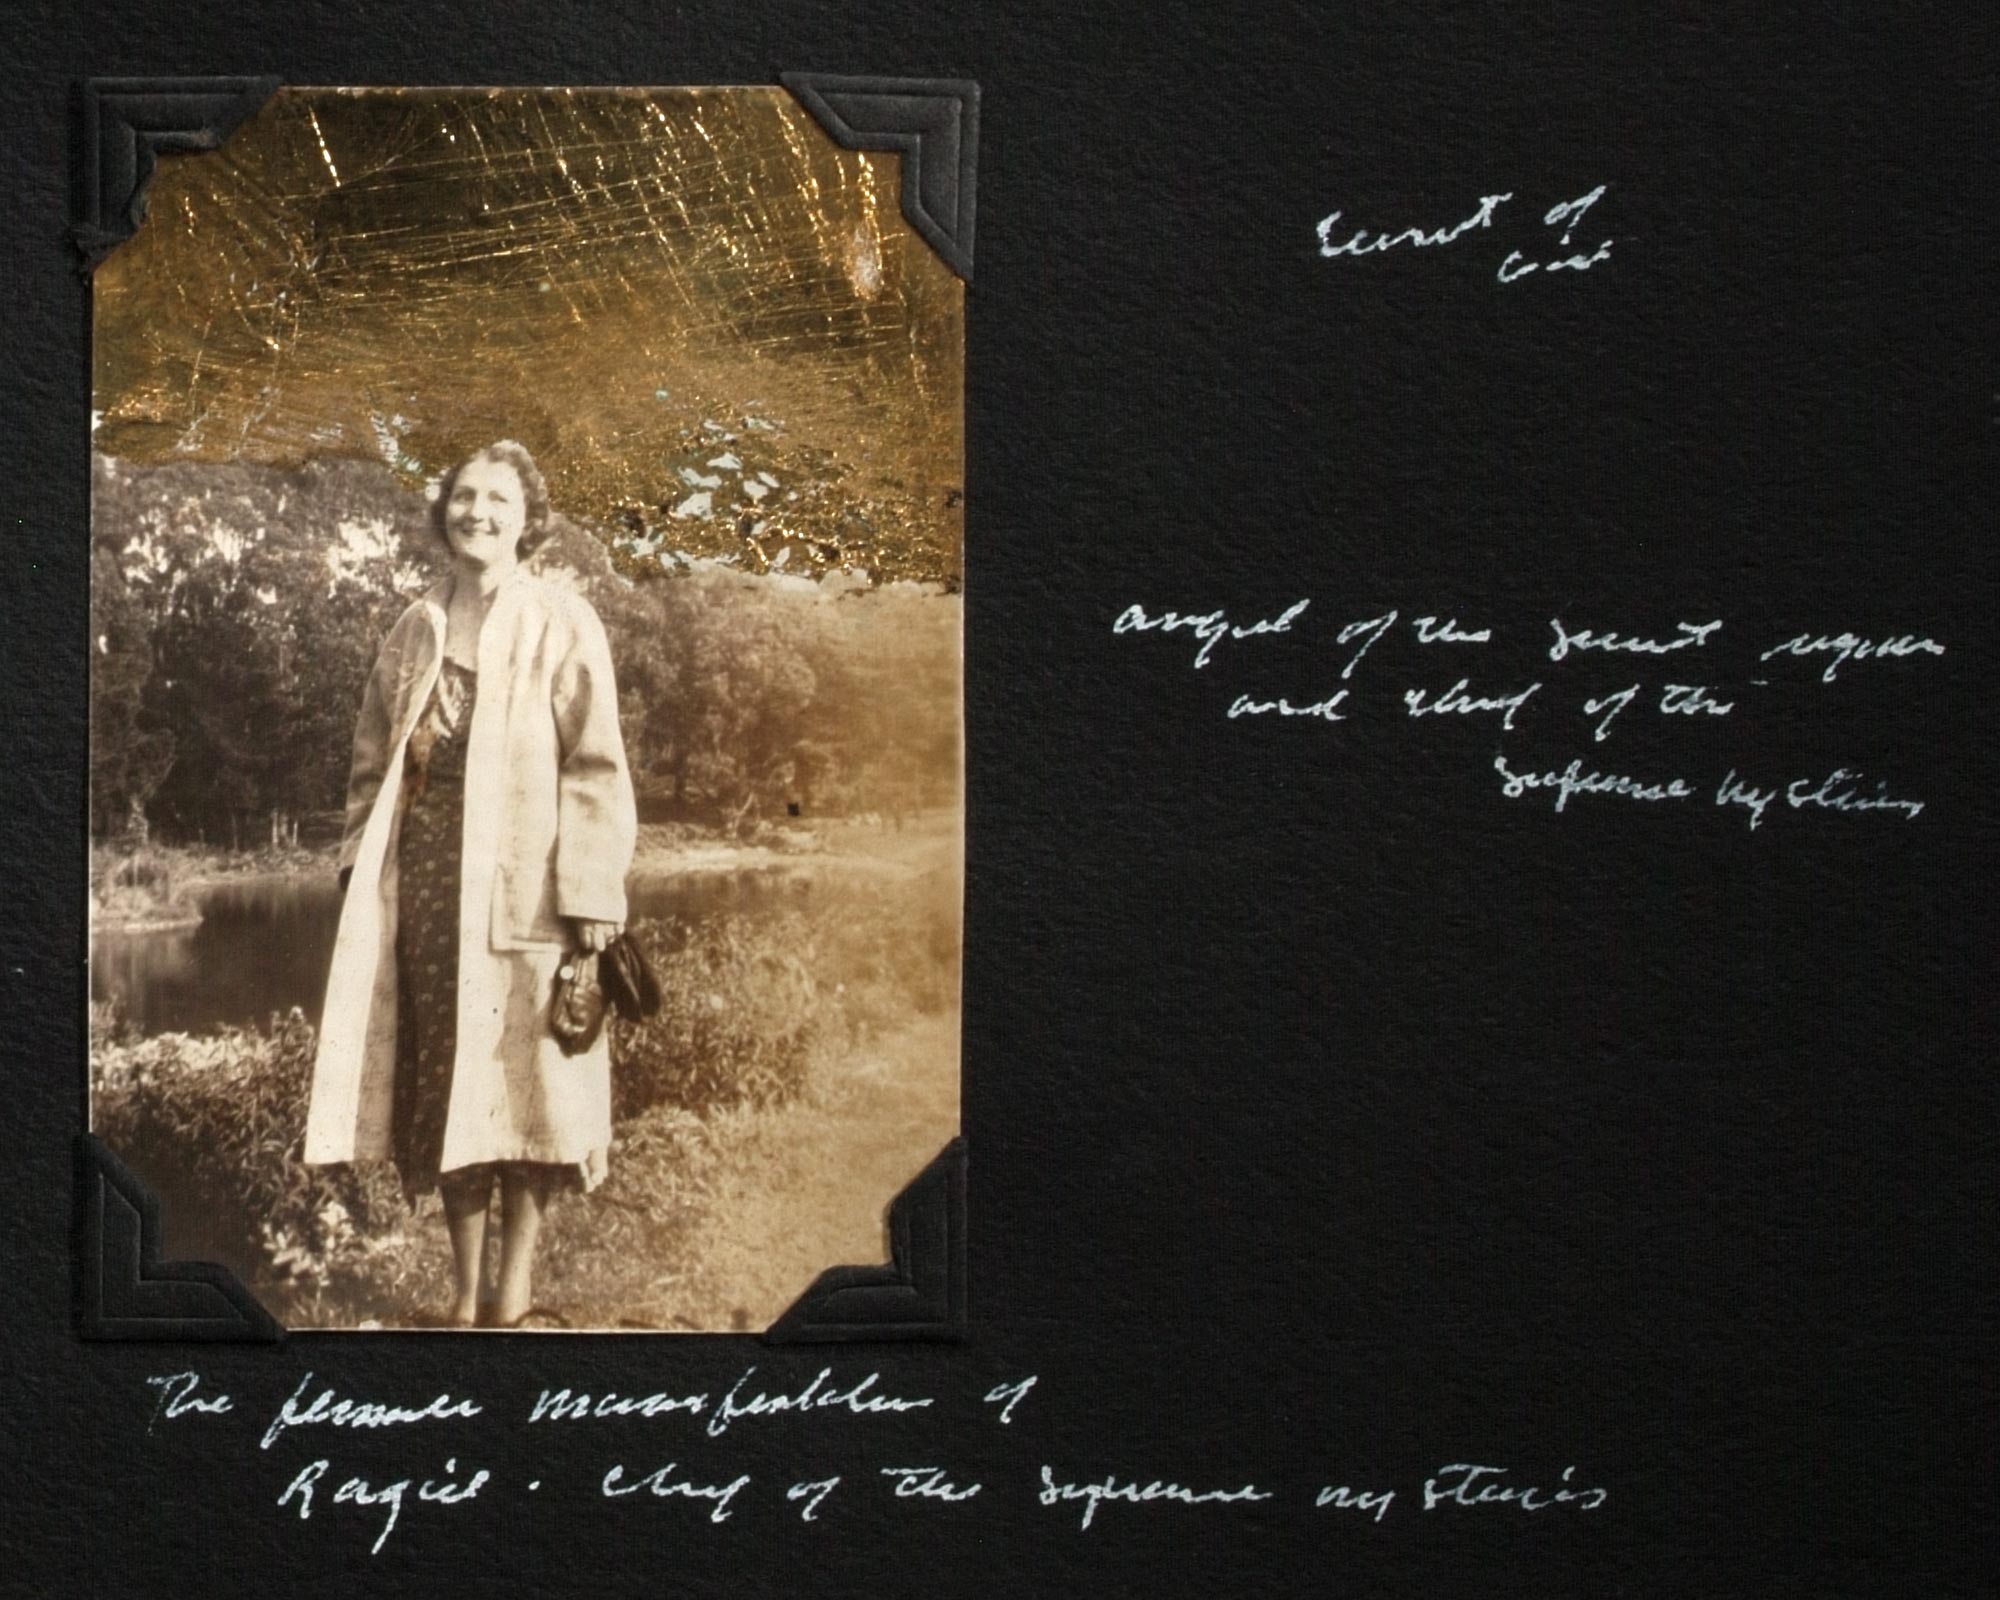 Secret of
angel of the secret region
and chief of the
Supreme Mysteries
The female manifestation of
Raziel. Chief of the Supreme mysteries